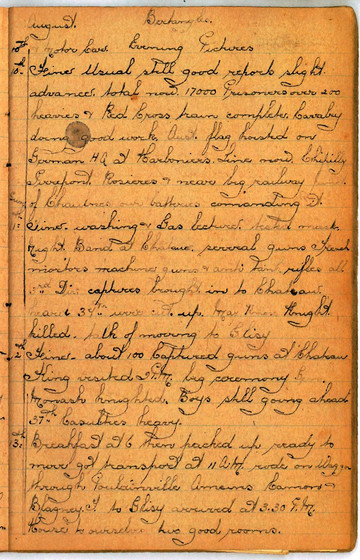 August. Bertangles.
& Motor Cars. Evening Pictures
10th Fine Usual still good reports slight
advance. total now. 17000 Prisoners over 200
heavies & Red Cross train complete. Cavalry
doing good work Aust. flag hoisted on
German HQ at Harboniers. Line now. Chipilly
Pierrepont Rosieres & near big railway
of Chaulnes our batteries comanding it
Fine. washing & Gas lecture.
Night Band at Chateau. several guns Trench
mortors machine guns & anti Tank rifles all
3rd Div captures brought in to Chateau
35th were set up. Knight
killed. talk of moving to Blisy
12th Fine. about 100 Captured guns at Chateau
King visited 2 P.M. big ceremony
Monash knighted. Boys still going ahead
37th Casulties heavy.
13. Breakfast at 6 then packed up ready to
move got transport at 11 A.M. rode on Waggon
through Poulainville Ameins Camon &
Blagney.T. to Blisy arrived at 3.30 P.M.
House to ourselves two good rooms.